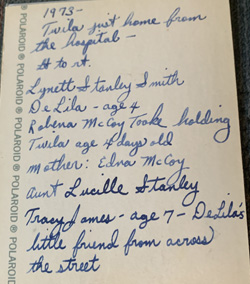 1973 -
Twila just home from
the hospital -
to rt.
Lynett Stanley Smith
DeLila - age 4
Robena McCoy Tooke holding
Twila age 4 days old
Mother: Edna McCoy
Aunt Lucille Stanley
Tracy James - age 7 - DeLila's
little friend from across
the street
POLAROID ® POLAROID ® POLAROID ® POLAROID ® POLAROID ®